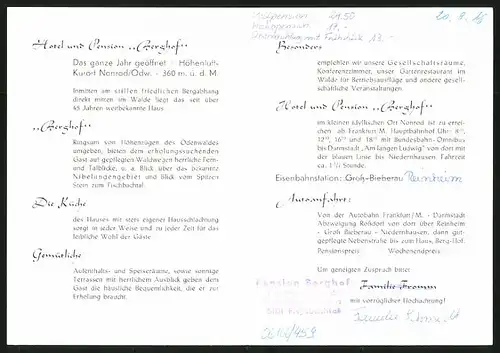 Vollpension 21.50
Halbpension 17.-
Übernachtung mit Frühstück 13.-
20. 8.
Hotel und Pension „Berghof“
Das ganze Jahr geöffnet Höhenluft-
Kurort Nonrod/Odw. - 360 m. ü. d. M.
Inmitten am stillen friedlichen Bergabhang
direkt mitten im Walde liegt das seit über
45 Jahren weitbekannte Haus
„Berghof“
Ringsum von Höhenzügen des Odenwaldes
umgeben, bieten dem erholungssuchenden
Gast auf gepflegten Waldwegen herrliche Fern-
und Talblicke, u. a. Blick über das bekannte
Nibelungengebiet und Blick vom Spitzen
Stein zum Fischbachtal.
Die Küche
des Hauses mit stets eigener Hausschlachtung
sorgt in jeder Weise und zu jeder Zeit für das
leibliche Wohl der Gäste
Gemütliche
Aufenthalts- und Speiseräume, sowie sonnige
Terrassen mit herrlichem Ausblick geben dem
Gast die häusliche Bequemlichkeit, die er zur
Erholung braucht.
Besonders
empfehlen wir unsere Gesellschaftsräume,
Konferenzzimmer, unser Gartenrestaurant im
Walde für Betriebsausflüge und andere gesell-
schaftliche Veranstaltungen.
Hotel und Pension „Berghof“
im kleinen idyllischen Ort Nonrod ist zu errei-
chen ab Frankfurt M. Hauptbahnhof Uhr
und mit Bundesbahn-Omnibus
bis Darmstadt, „Am langen Ludwig“ von dort mit
der blauen Linie bis Niedernhausen. Fahrzeit
ca. 1½ Stunde
Eisenbahnstation: Groß-Bieberau Reinheim
Autoanfahrt:
Von der Autobahn Frankfurt/M. - Darmstadt
Abzweigung Roßdorf von dort über Reinheim
- Groß Bieberau - Niedernhausen, dann gut-
gepflegte Nebenstraße bis zum Haus, Berg-Hof.
Pensionspreis Wochenendpreis
Um geneigten Zuspruch bittet
Familie Fromm
mit vorzüglicher Hochachtung!
Pension Berghof
Familie